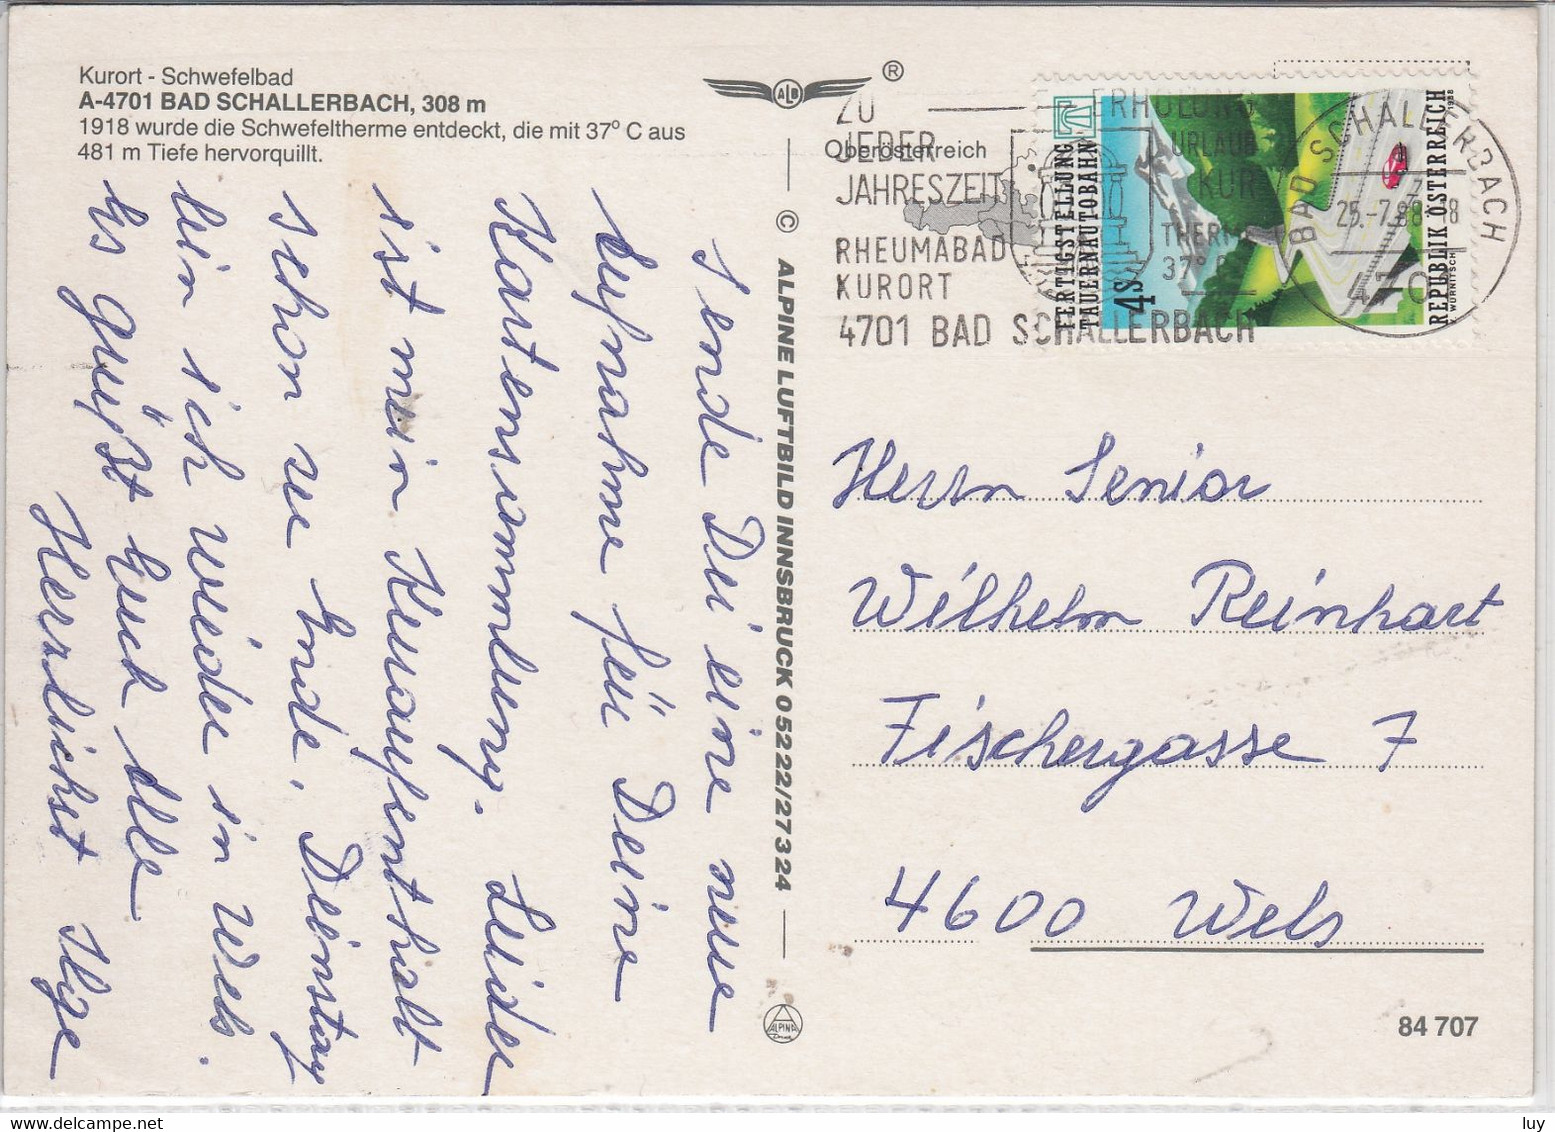 Kurort - Schwefelbad
A-4701 BAD SCHALLERBACH, 308 m
1918 wurde die Schwefeltherme entdeckt, die mit 37° C aus
481 m Tiefe hervorquillt.
Sende Dir eine neue
Aufnahme für Deine
Kartensammlung. Leider
ist mein Kuraufenthalt
schon zu Ende. Dienstag
bin ich wieder in Wels.
Es grüßt Euch alle
Herzlichst Ilge
ALB
®
© ALPINE LUFTBILD INNSBRUCK 0 52 22/27 3 24
ALPINA
Druck
Oberösterreich
ZU
JEDER
JAHRESZEIT
ERHOLUNG
URLAUB
KUR
THERME
37°
RHEUMABAD
KURORT
4701 BAD SCHALLERBACH
FERTIGSTELLUNG
TAUERNAUTOBAHN
4S
REPUBLIK ÖSTERREICH
1988
BAD SCHALLERBACH
25.-7.88-18
4701
Herrn Senior
Wilhelm Reinhart
Fischergasse 7
4600 Wels
84 707
www.delcampe.net
luy